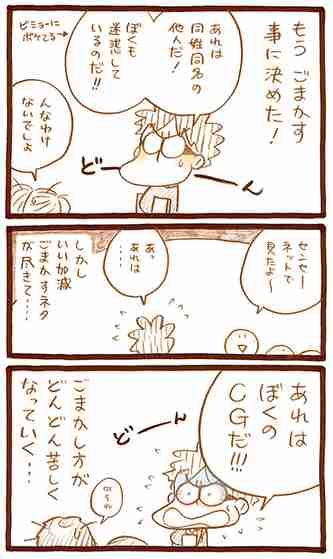 もう ごまかす
事に決めた！
あれは
同姓同名の
他人だ！
ぼくも
迷惑して
いるのだ!!
ビミョーに
ボケてる→
んなわけ
ないでしょ
どーーん
センセー
ネットで
見たよ～
あっ
あれは
・・・・
しかし
いい加減
ごまかすネタ
が尽きて・・・
あれは
ぼくの
CGだ!!!
どーん
ごまかし方が
どんどん苦しく
なっていく・・・